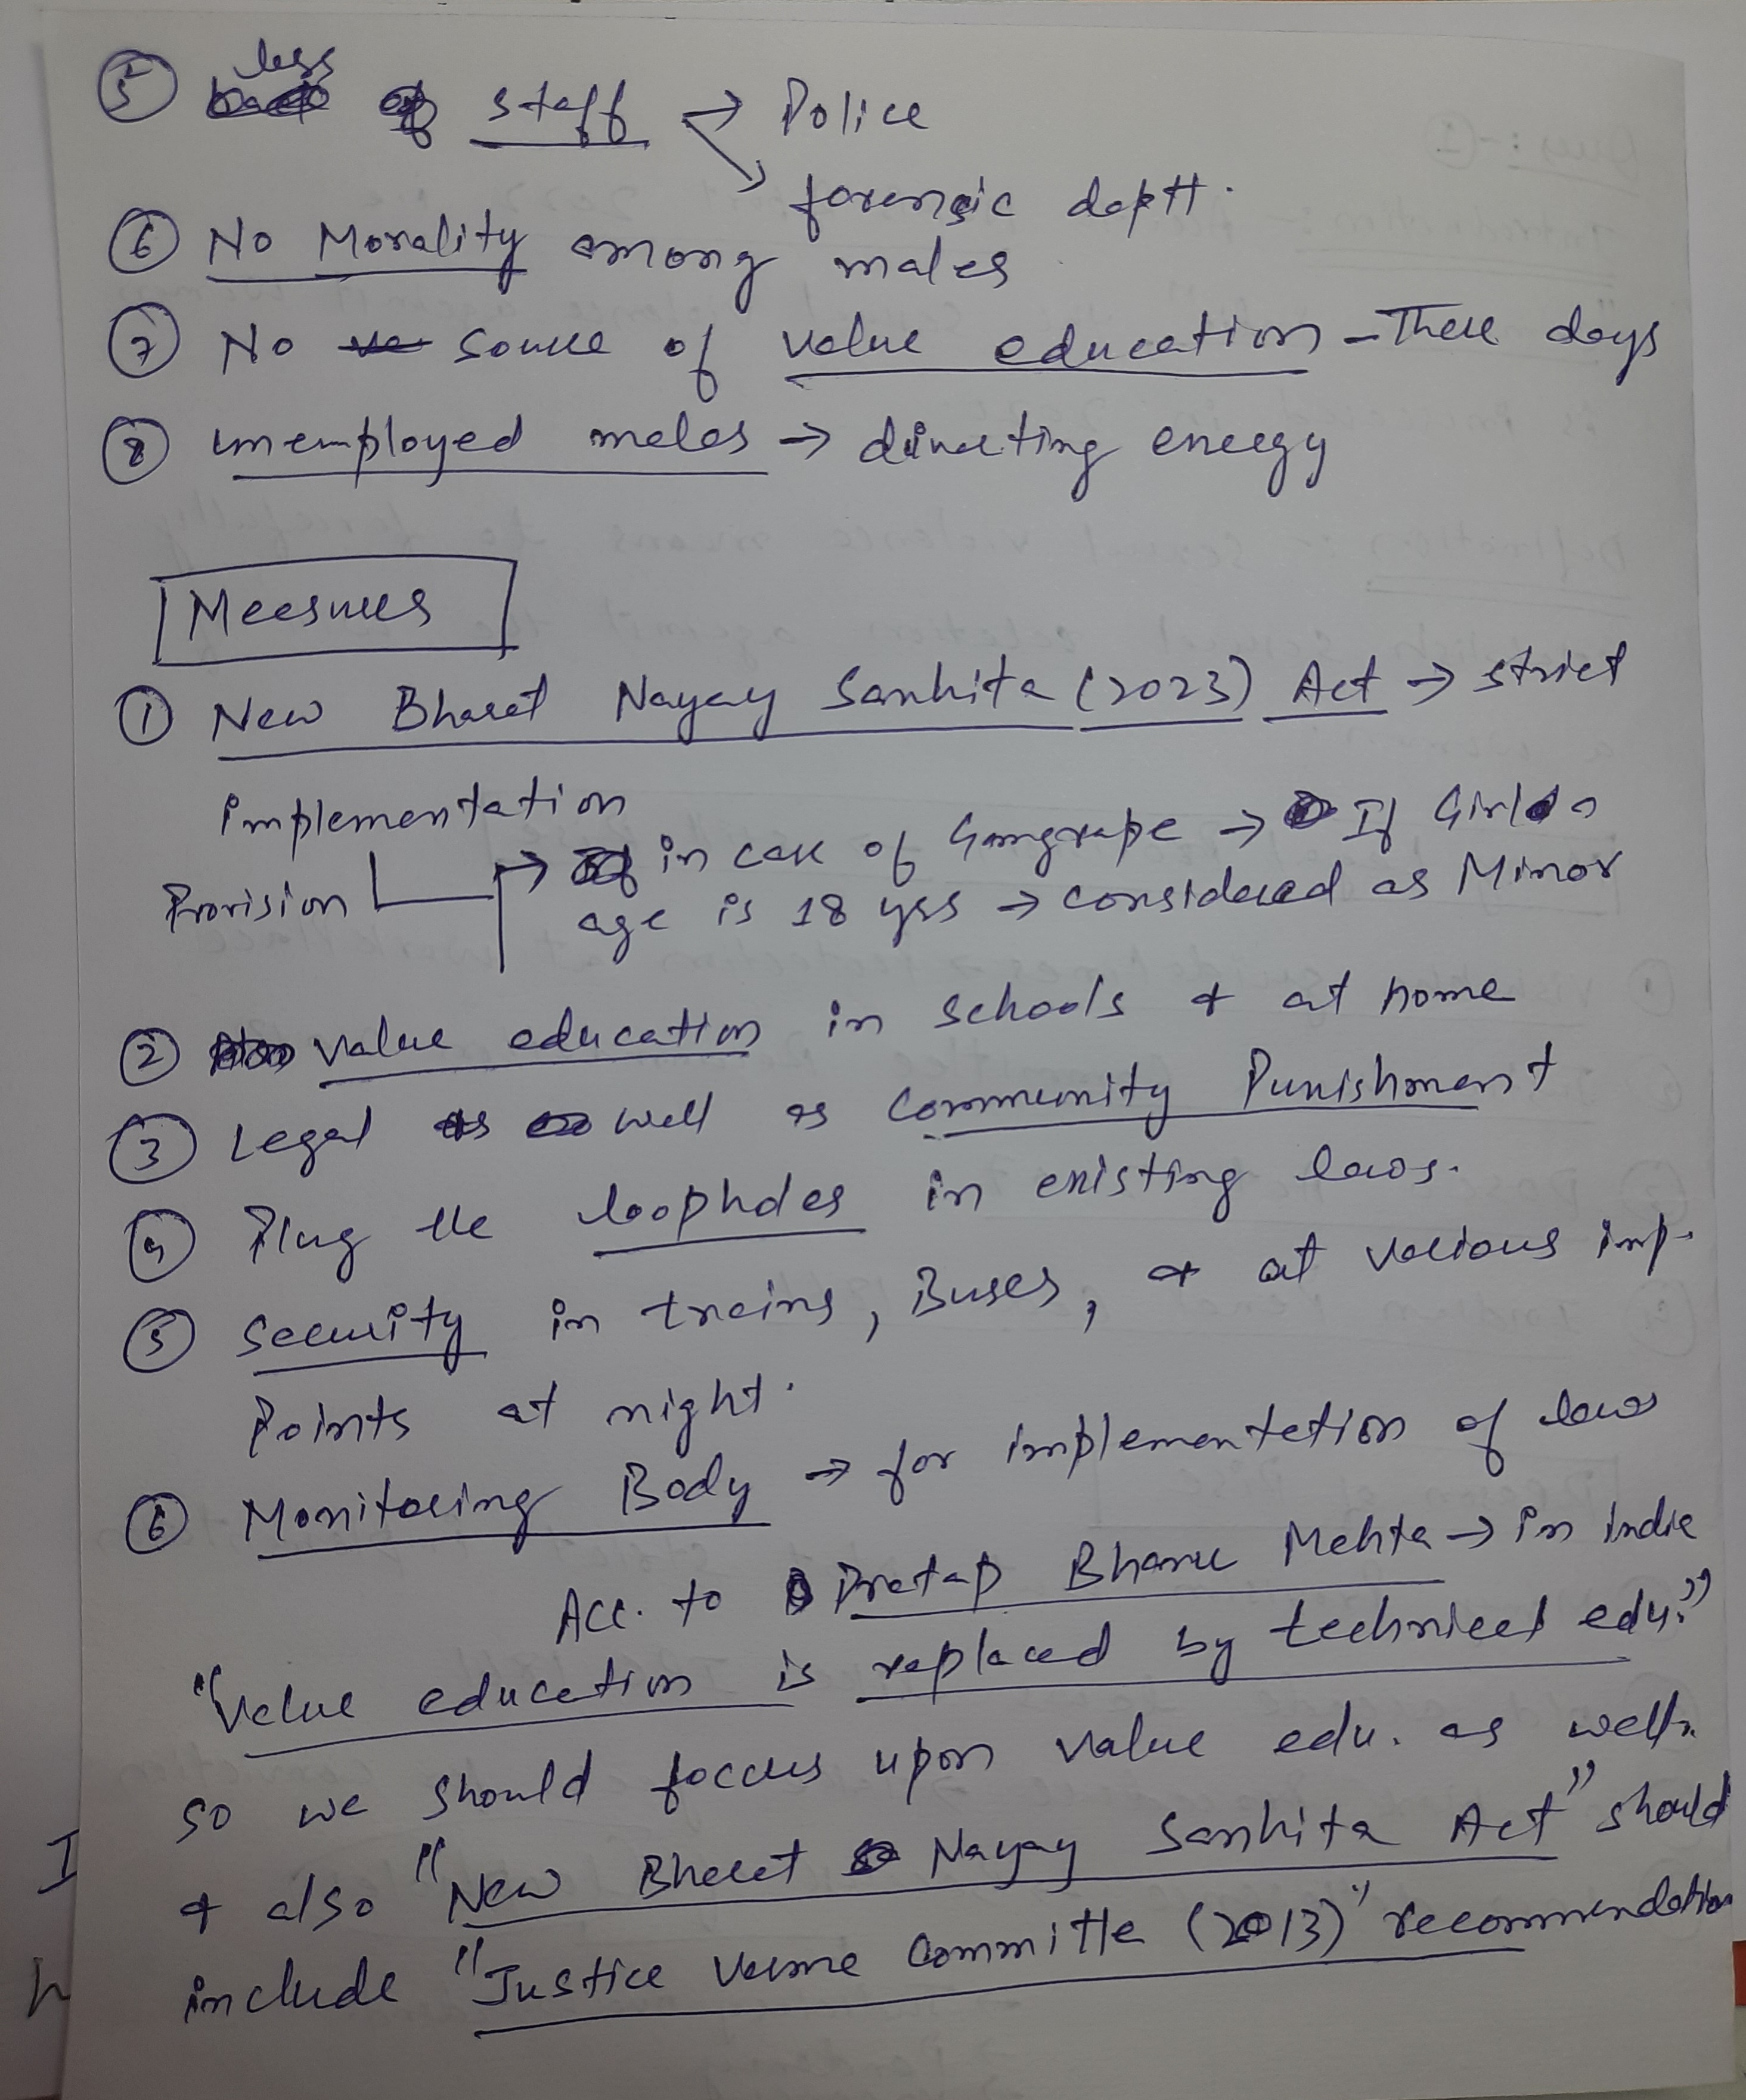 5 less staff → Police
→ forensic deptt.
6 No Morality among males
7 No source of value education - These days
8 unemployed males → directing energy
Measures
1 New Bharat Nayay Sanhita (2023) Act → strict
implementation
Provision → in case of Gangrape → If Girls
age is 18 yrs → considered as Minor
2 value education in schools & at home
3 Legal as well as Community Punishment
4 Plug the loopholes in existing laws.
5 Security in trains, Buses, & at various imp.
Points at night.
6 Monitoring Body → for implementation of laws
Acc. to Pratap Bhanu Mehta → in India
"Value education is replaced by technical edu."
so we should focus upon value edu. as well.
& also "New Bharat Nayay Sanhita Act" should
include "Justice Verma Committe (2013)" recommendation